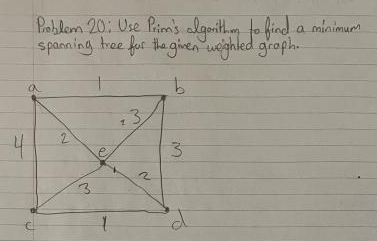 Problem 20: Use Prim's algorithm to find a minimum
spanning tree for the given weighted graph.
a 1 b
4 2 e 3 3
3 2
c 1 d